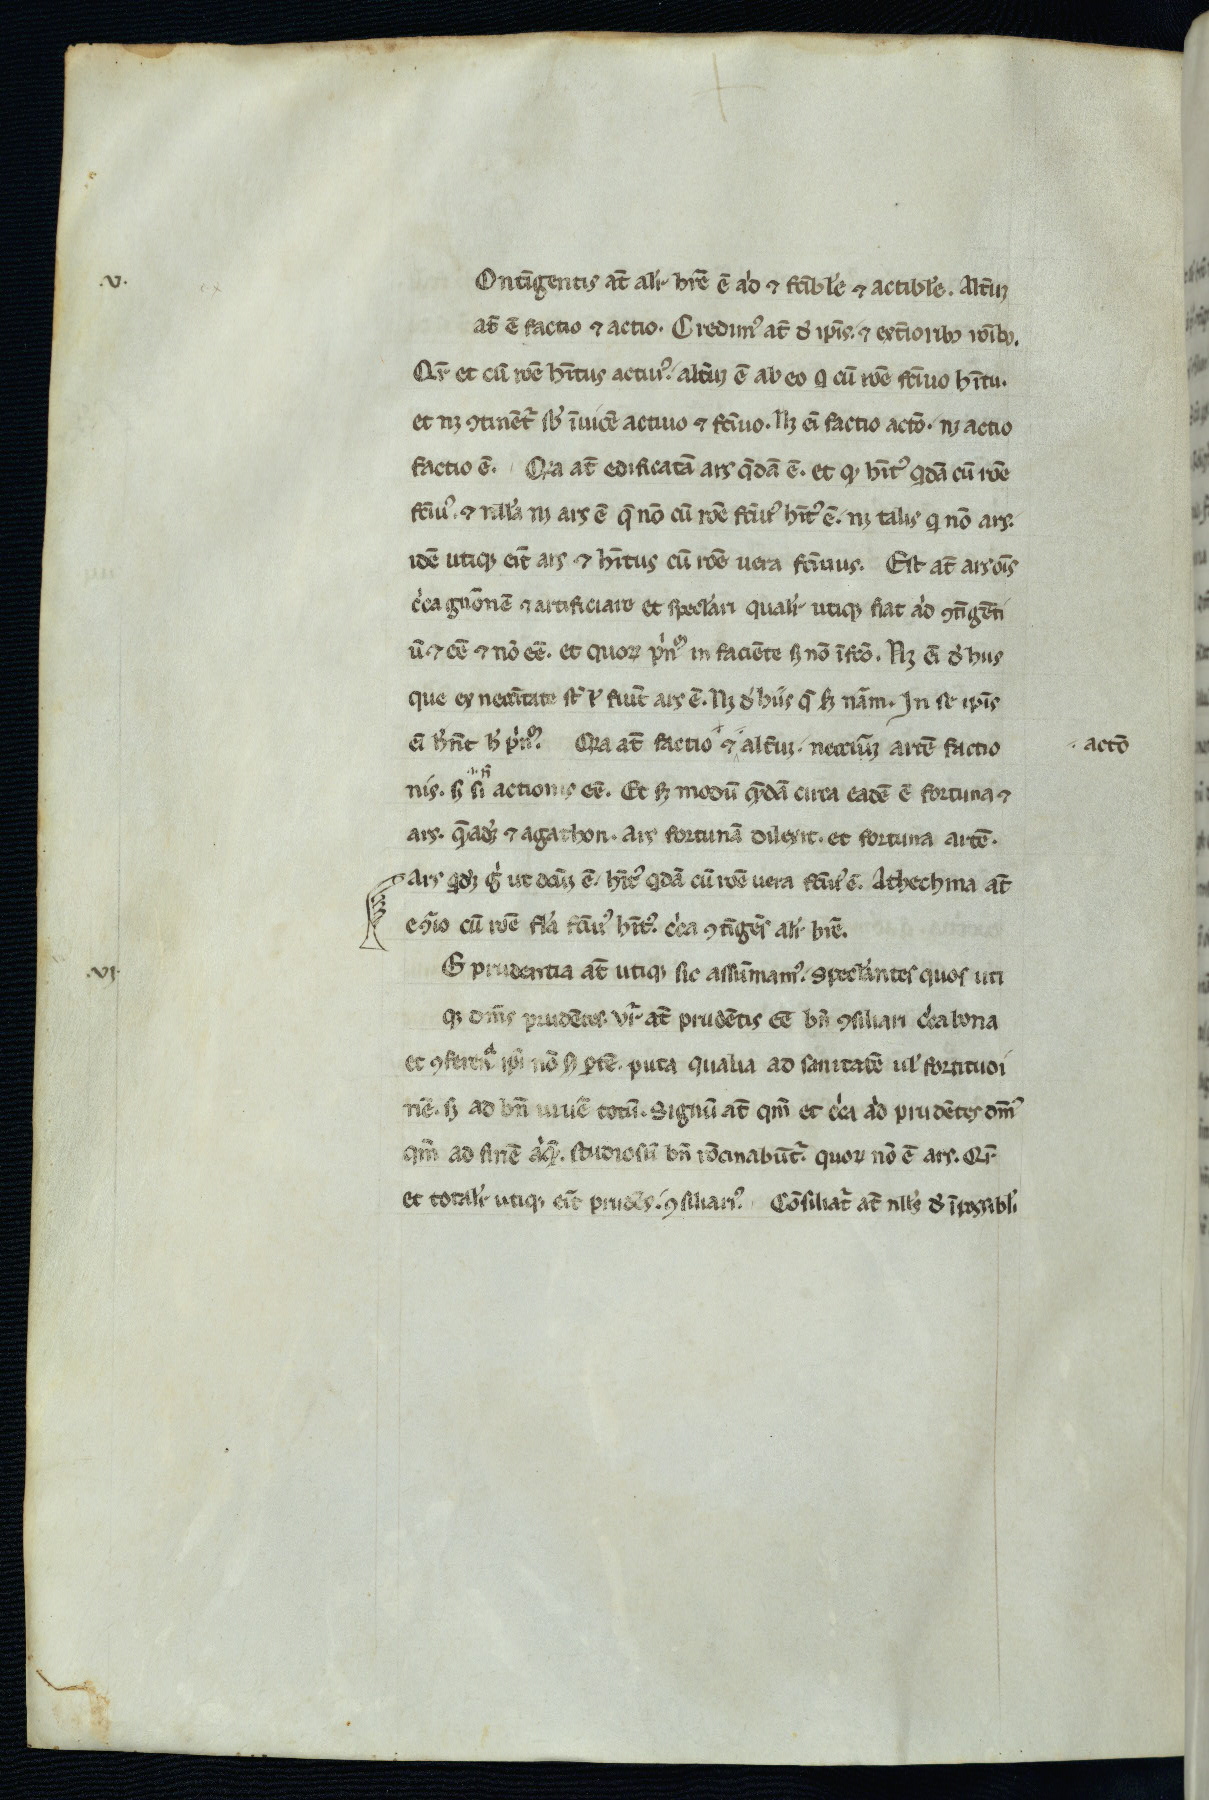 .v.
Ontīgentis at̄ alr̄ hr̄e ē aͥd ⁊ fcībile ⁊ actibile. Alt̄ꝝ
at̄ ē factio ⁊ actio. Credimꝰ at̄ d̓ ip̄is. ⁊ ext̄ioribꝫ rōibꝫ.
Qr̄ et cū rōe hītus actiuꝰ. alt̄ꝝ ē ab eo q̄ cū rōe fc̄iuo hītu.
et nꝫ ꝯtinēt̄ sb̄ īuicē actiuo ⁊ fc̄iuo. Nꝫ eī factio actō. nꝫ actio
factio ē. Qꝛa at̄ edificatā ars q̄dā ē. et qꝫ hītꝰ qͥdā cū rōe
fc̄iuꝰ. ⁊ nll̄a nꝫ ars ē q̄ nō cū rōe fc̄iuꝰ hītꝰ ē. nꝫ talis q̄ nō ars.
idē utiqꝫ eit̄ ars ⁊ hītus cū rōe uera fc̄iuus. Est at̄ ars oīs
cͥca gn̄onē ⁊ artificiare et specl̄ari qualr̄ utiqꝫ fiat aͥd ꝯtīgēti
ū. ⁊ eē ⁊ nō eē. et quoꝝ pͥnⁿ in faciēte sꝫ nō ī fcō. Nꝫ eī d̓ hiis
que ex nec̄itate st̄ ł fiūt ars ē. Nꝫ d̓ hiis q̄ sꝫ nām. In se ip̄is
eī hn̄t h̄ pͥnⁿ. Qꝛa at̄ factio ⁊ alt̄ꝝ. neccīuꝫ artē factio
actō
nis. sꝫ n̄ actionis eē. Et sꝫ modū q̄dā circa eadē ē fortuna ⁊
ars. q̄adꝫ ⁊ agathon. Ars fortunā dilexit. et fortuna artē.
Ars qͥdꝫ gͥ ut dcūꝫ ē. hītꝰ qͥdā cū rōe uera fc̄iuꝰ ē. Athechnia at̄
eꝯͣio cū rōe fl̄a fc̄iuꝰ hītꝰ. cͥca ꝯtīgēs alr̄ hr̄e.
.vi.
E prudentia at̄ utiqꝫ sic assūmamꝰ. specl̄antes quos uti
qꝫ dīms prudētes. vr̄ at̄ prudētis eē bn̄ ꝯsiliari cͥca bona
et ꝯferētia ip̄i nō sꝫ ꝑtē. puta qualia ad sanitatē ul̄ fortitudi
nē. sꝫ ad bn̄ uiuē totū. Signū at̄ qm̄ et cͥca aͥd prudētes dm̄ꝰ
qm̄ ad finē aͥqͣ. studiosū bn̄ rōcinabūt̄. quoꝝ nō ē ars. Qr̄
et totalr̄ utiqꝫ eit̄ prudēs. ꝯsiliatīꝰ. Cōsiliat̄ at̄ nll̄s d̓ īpossibl̄i